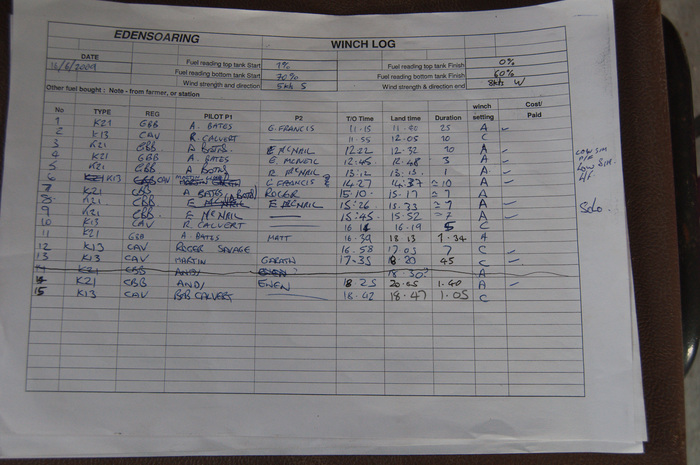 EDENSOARING WINCH LOG
DATE Fuel reading top tank Start 1% Fuel reading top tank Finish 0%
16/6/2009 Fuel reading bottom tank Start 70% Fuel reading bottom tank Finish 60%
Wind strength and direction 5kts S Wind strength & direction end 8kts W
Other fuel bought : Note - from farmer, or station
No TYPE REG PILOT P1 P2 T/O Time Land time Duration winch setting Cost/ Paid
1 K21 GBB A. BATES G. FRANCIS 11.15 11.40 25 A
2 K13 CAV R. CALVERT 11.55 12.05 10 C
3 K21 GBB A BATES E MCNAIL 12.22 12.32 10 A
4 K21 GBB A. BATES E. MCNEIL 12.45 12.48 3 A
5 K21 GBB A BATES E MCNAIL 13.12 13.13 1 A
6 K13 CAV G FRANCIS 14.27 14.37 10 A
7 K21 A BATES ROGER 15.10 15.17 7 A
8 K21 GBB E MCNAIL 15.26 15.33 7 A
9 K21 GBB E MCNAIL 15.45 15.52 7 A
10 K13 CAV R. CALVERT 16.19 5 C
11 K21 GBB A BATES MATT 16.39 18.13 1.34 A
12 K13 CAV ROGER SAVAGE 16.58 17.05 7 C
13 K13 CAV MARTIN GARATH 17.35 18.20 45 C
14 K21 GBB ANDY EWEN 18.30? A
14 K21 GBB ANDY EWEN 18 25 20.05 1.40 A
15 K13 CAV BOB CALVERT 18.42 18.47 1.05 C
LOW SIM
LOW SIM.
Solo.